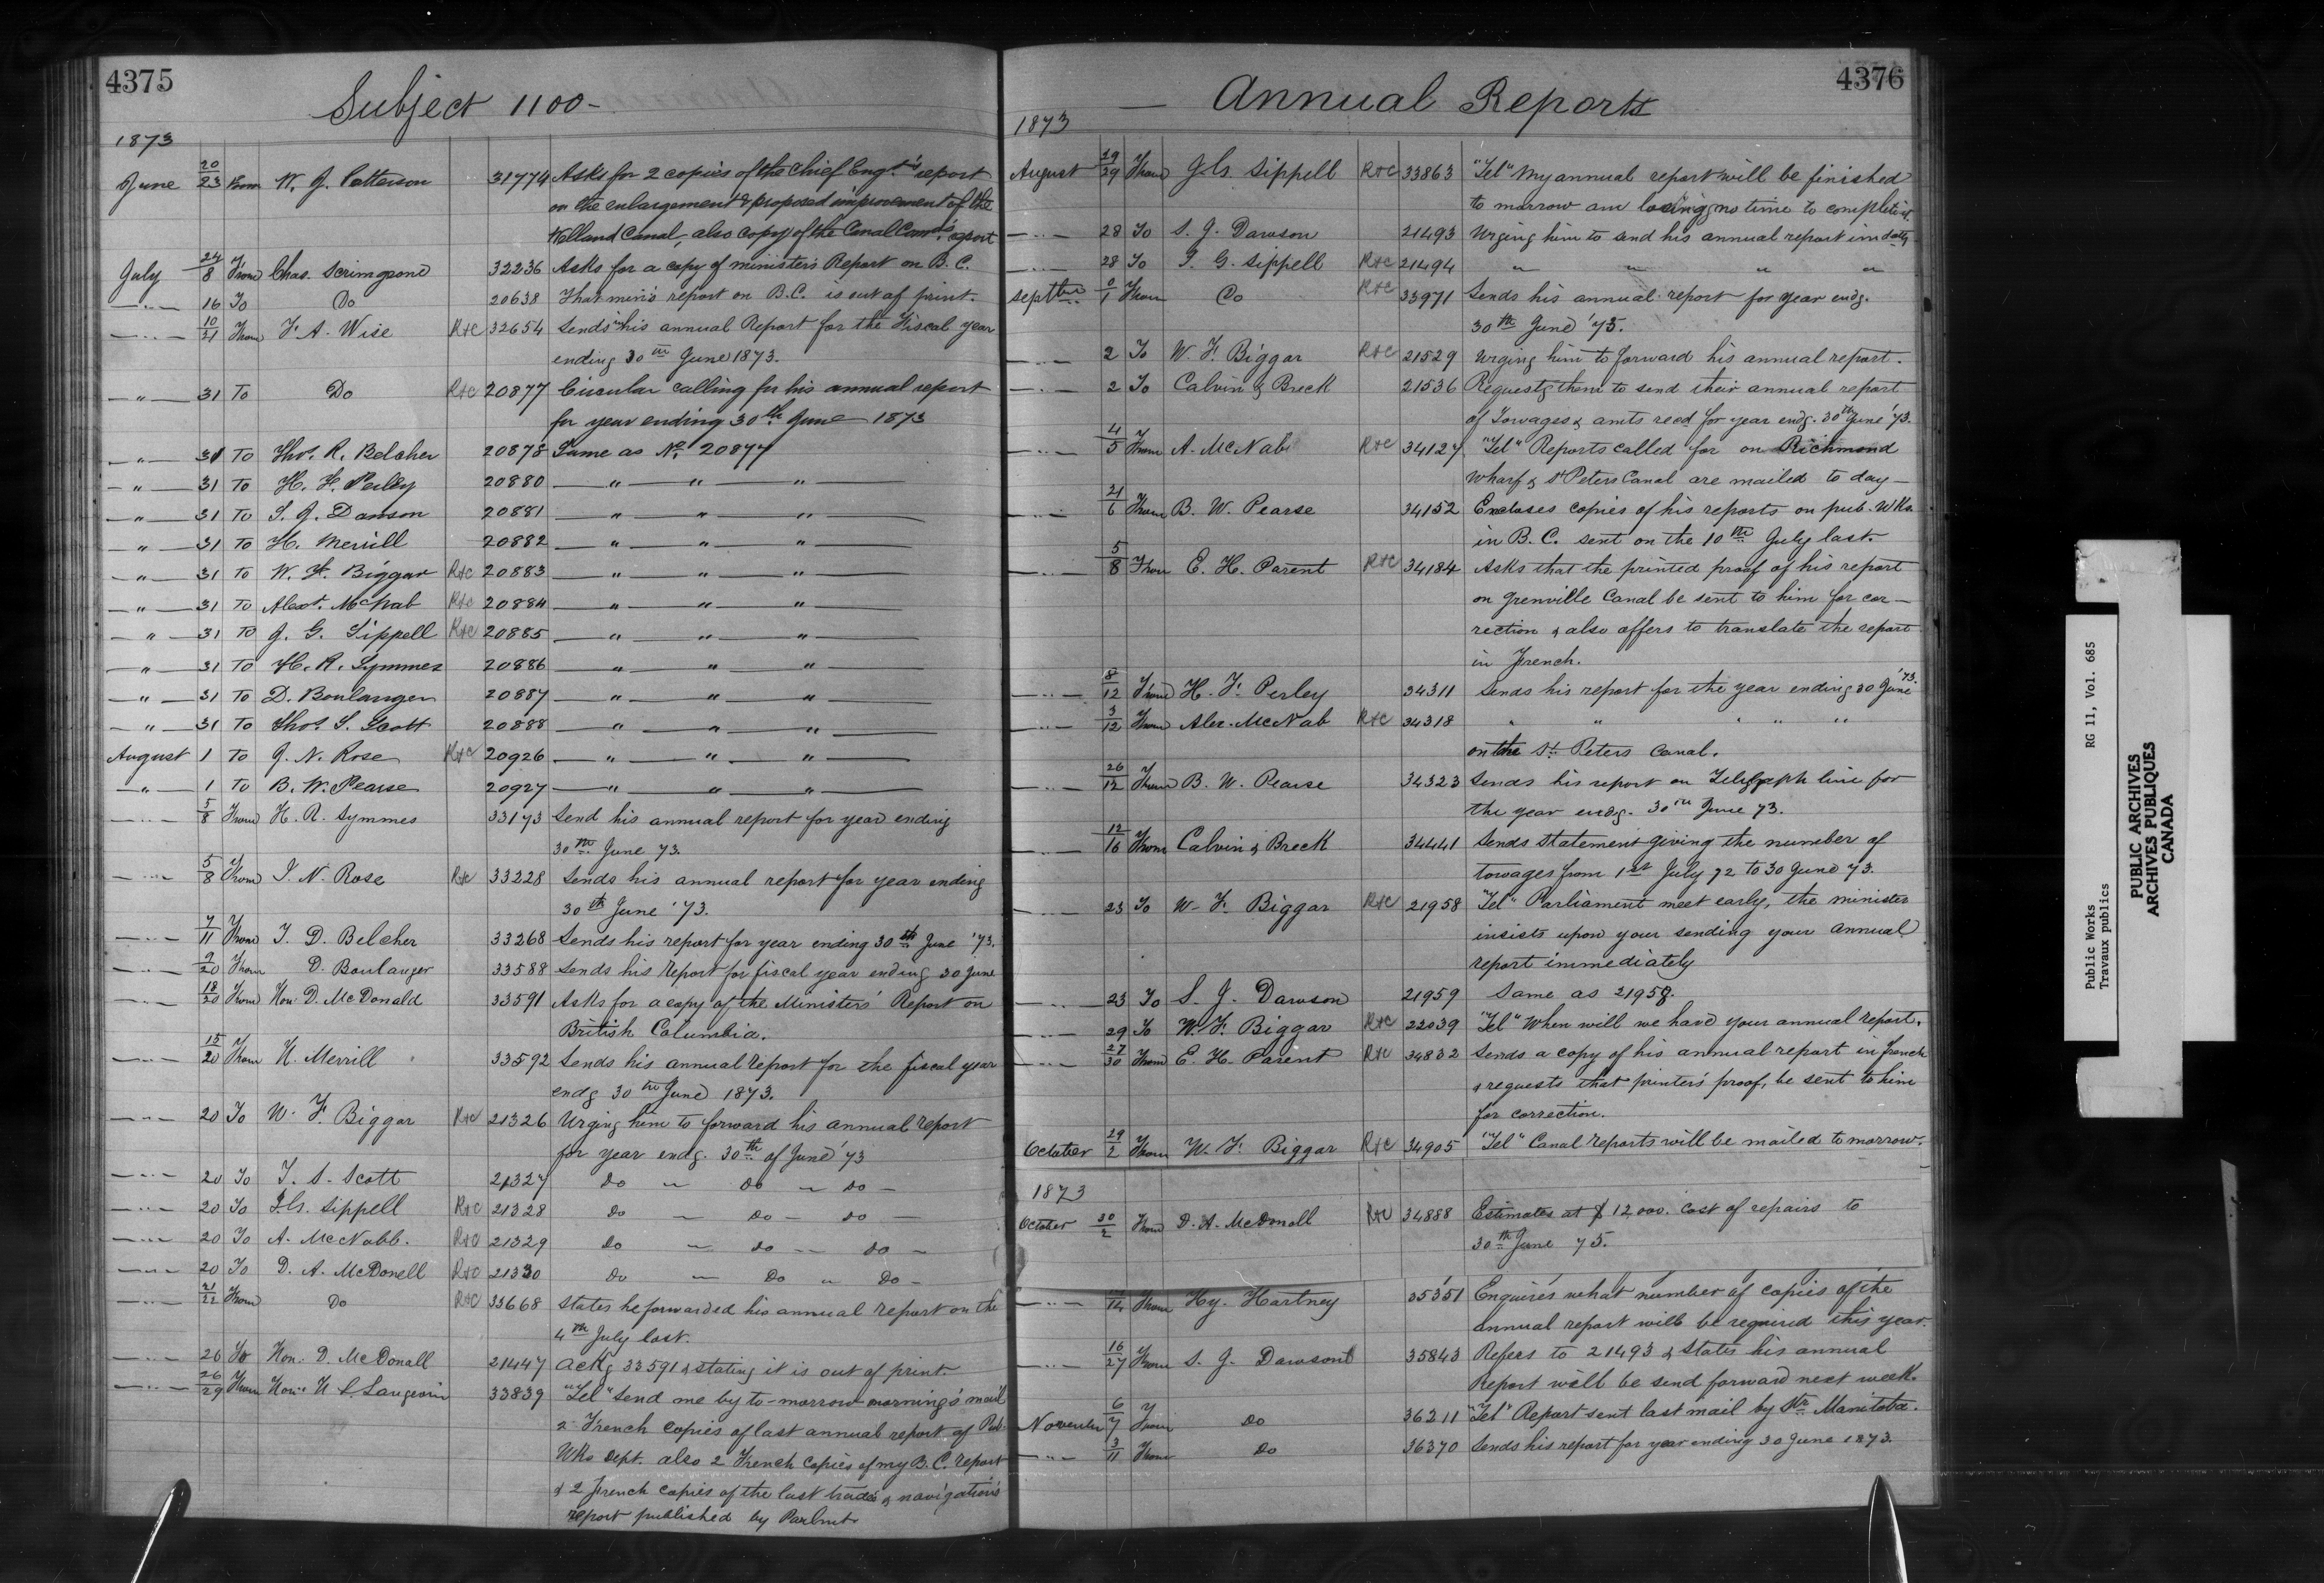 4375
Subject 1100-
1873
June 20/23 From W. J. Patterson 31774 Asks for 2 copies of the Chief Engr's report
on the enlargement & proposed improvement of the
Welland Canal, also copy of the Canal Comrs report
July 24/8 From Chas. Scrimgeour 32236 Asks for a copy of minister's Report on B.C.
—"— 16 To Do 20638 That min's report on B.C. is out of print.
—"— 10/21 From F. A. Wise R&C 32654 Sends in his annual Report for the Fiscal year
ending 30th June 1873.
—"— 31 To Do R&C 20877 Circular calling for his annual report
for year ending 30th June 1873
—"— 31 To Thos. R. Belcher 20878 Same as No. 20877
—"— 31 To H. F. Perley 20880 —"—"—"—
—"— 31 To S. J. Dawson 20881 —"—"—"—
—"— 31 To H. Merrill 20882 —"—"—"—
—"— 31 To W. F. Biggar R&C 20883 —"—"—"—
—"— 31 To Alexr. McNab R&C 20884 —"—"—"—
—"— 31 To J. G. Sippell R&C 20885 —"—"—"—
—"— 31 To H. R. Symmes 20886 —"—"—"—
—"— 31 To D. Boulanger 20887 —"—"—"—
—"— 31 To Thos. S. Scott 20888 —"—"—"—
August 1 To J. N. Rose R&C 20926 —"—"—"—
—"— 1 To B. W. Pearse 20927 —"—"—"—
—"— 5/8 From H. R. Symmes 33173 Send his annual report for year ending
30th June 73.
—"— 5/8 From J. N. Rose R&C 33228 Sends his annual report for year ending
30th June '73.
—"— 7/11 From T. D. Belcher 33268 Sends his report for year ending 30th June '73.
—"— 9/20 From D. Boulanger 33588 Sends his report for fiscal year ending 30 June
—"— 18/20 From Hon D. McDonald 33591 Asks for a copy of the Ministers' Report on
British Columbia.
—"— 15/20 From H. Merrill 33592 Sends his annual report for the fiscal year
endg 30th June 1873.
—"— 20 To W. F. Biggar R&C 21326 Urging him to forward his annual report
for year endg. 30th of June '73
—"— 20 To T. S. Scott 21327 Do — Do — Do —
—"— 20 To J.G. Sippell R&C 21328 Do — Do — Do
—"— 20 To A. McNabb. R&C 21329 Do — Do — Do —
—"— 20 To D. A. McDonell R&C 21330 Do — Do — Do —
—"— 21/22 From Do R&C 33668 States he forwarded his annual report on the
4th July last.
—"— 26 To Hon. D. McDonall 21447 Ackg 33591 & stating it is out of print.
—"— 26/29 From Hon. H L Langevin 33839 "Tel" Send me by to-morrow morning's mail
2 French copies of last annual report of Pub.
Wks Dept. also 2 French copies of my B.C. report
& 2 French copies of the last trade & navigation's
report published by Parlmt.
4376
— Annual Reports
1873
August 29/29 From J G. Sippell R&C 33863 "Tel" My annual report will be finished
to morrow am losing no time to complete it
—"— 28 To S. J. Dawson 21493 Urging him to send his annual report immdatly
—"— 28 To J. G. Sippell R&C 21494 " " " "
Septber 0/1 From Do R&C 33971 Sends his annual report for year endg.
30th June '73.
—"— 2 To W F. Biggar R&C 21529 Urging him to forward his annual report.
—"— 2 To Calvin & Breck 21536 Requestg them to send their annual report
of Towages & amts recd for year endg. 30th June '73.
—"— 4/5 From A. McNab R&C 34127 "Tel" Reports called for on Richmond
Wharf & St Peters Canal are mailed to day —
—"— 21/6 From B. W. Pearse 34152 Encloses copies of his reports on pub. Wks.
in B. C. sent on the 10th July last.
—"— 5/8 From E. H. Parent R&C 34184 Asks that the printed proof of his report
on Grenville Canal be sent to him for cor —
rection & also offers to translate the report
in French.
—"— 8/12 From H. F. Perley 34311 Sends his report for the year ending 30 June '73.
—"— 3/12 From Alex. McNab R&C 34318 " " " " "
on the St. Peters Canal.
—"— 26/12 From B. W. Pearse 34323 Sends his report on Telegraph line for
the year endg. 30th June 73.
—"— 12/16 From Calvin & Breck 34441 Sends statement giving the number of
towages from 1st July 72 to 30 June 73.
—"— 23 To W. F. Biggar R&C 21958 "Tel" Parliament meet early, the minister
insists upon your sending your annual
report immediately
—"— 23 To S. J. Dawson 21959 Same as 21958.
—"— 29 To W. F. Biggar R&C 22039 "Tel" When will we have your annual report.
—"— 27/30 From E. H. Parent R&C 34832 Sends a copy of his annual report in french
& requests that printer's proof, be sent to him
for correction.
October 29/2 From W. F. Biggar R&C 34905 "Tel" Canal reports will be mailed tomorrow.
1873
October 30/2 From D. A. McDonall R&C 34888 Estimates at $12,000. cost of repairs to
30th June 75.
—"— /14 From Hy. Hartney 35351 Enquires what number of copies of the
annual report will be required this year.
—"— 16/27 From S. J. Dawson 35843 Refers to 21493 & states his annual
Report will be send forward next week.
November 6/7 From Do 36211 "Tel" Report sent last mail by Str. Manitoba.
—"— 3/11 From Do 36370 Sends his report for year ending 30 June 1873.
Public Works RG 11, Vol. 685
Travaux publics
PUBLIC ARCHIVES
ARCHIVES PUBLIQUES
CANADA